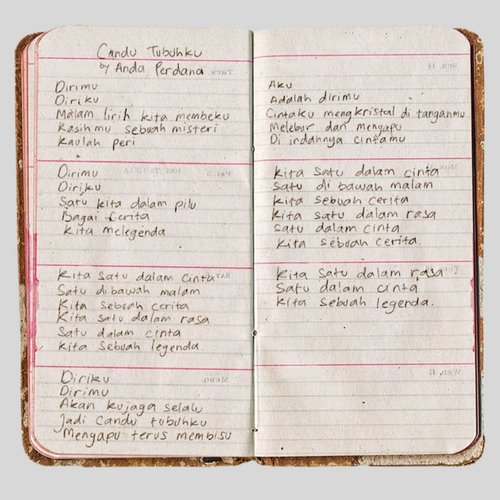 Candu Tubuhku
by Anda Perdana
Dirimu
Diriku
Malam lirih kita membeku
Kasihmu sebuah misteri
Kaulah peri
Dirimu
Diriku
Satu kita dalam pilu
Bagai cerita
Kita melegenda
Kita satu dalam cinta
Satu dibawah malam
Kita sebuah cerita
Kita satu dalam rasa
Satu dalam cinta
Kita sebuah legenda
Diriku
Dirimu
Akan kujaga selalu
Jadi candu tubuhku
Mengapu terus membisu
Aku
Adalah dirimu
Cintaku mengkristal di tanganmu
Melebur dan menyapu
Di indahnya cintamu
Kita satu dalam cinta
Satu di bawah malam
Kita sebuah cerita
Kita satu dalam rasa
Satu dalam cinta
Kita sebuah cerita.
Kita satu dalam rasa
Satu dalam cinta
Kita sebuah legenda.